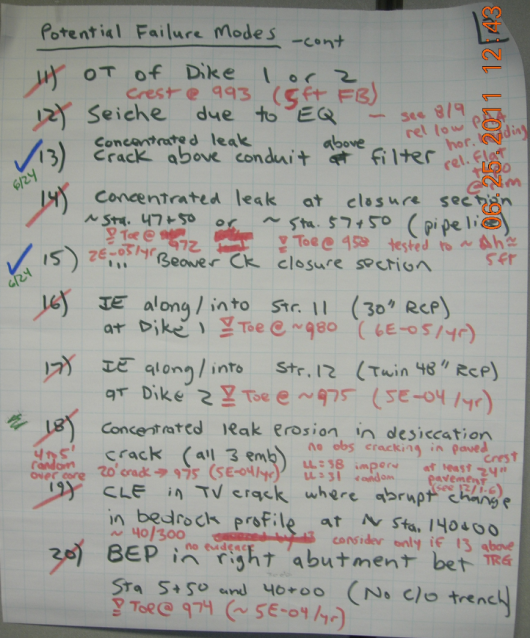 Potential Failure Modes -cont
11) OT of Dike 1 or 2
Crest @ 993 (5ft FB)
12) Seiche due to EQ - see 8/9
rel low
hor.
rel. flat
13) Concentrated leak above
Crack above conduit filter
6/24
14) Concentrated leak at closure section
~ Sta. 47+50 or ~ Sta. 57+50 (pipeline)
Toe @ 972 Toe @ 958 tested to ~ Δh ≈ 5ft
2E-05/yr
15) ... Beaver Ck closure section
6/24
16) IE along/into Str. 11 (30" RCP)
at Dike 1 Toe @ ~980 (6E-05/yr)
17) IE along/into Str. 12 (Twin 48" RCP)
at Dike 2 Toe @ ~975 (5E-04/yr)
18) Concentrated leak erosion in desiccation
crack (all 3 emb) no obs cracking in paved crest
4 to 5' random over core
20' crack → 975 (5E-04/yr)
LL=38 imperv
LL=31 random
at least 24" pavement
19) CLE in TV crack where abrupt change
in bedrock profile at ~ Sta. 140+00
~ 40/300 consider only if 13 above TRG
no evidence
20) BEP in right abutment bet
Sta 5+50 and 40+00 (No C/O trench)
Toe @ 974 (~ 5E-04/yr)
06 25 2011 12 43